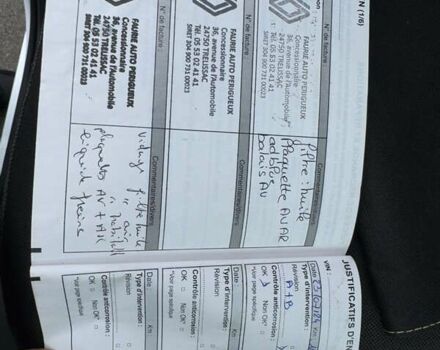 N (1/6)
N° de facture :
Concessionnaire
36, avenue de l'Automobile
24750 TRELISSAC
Tél. 05 53 02 41 41
SIRET 304 900 731 00023
Commentaires/divers
filtre : huile
Plaquette AV AR
adblue
balais AV
N° de facture :
FAURIE AUTO PERIGUEUX
Concessionnaire
36, avenue de l'Automobile
24750 TRELISSAC
Tél. 05 53 02 41 41
SIRET 304 900 731 00023
Commentaires/divers
N° de facture :
FAURIE AUTO PERIGUEUX
Concessionnaire
36, avenue de l'Automobile
24750 TRELISSAC
Tél. 05 53 02 41 41
SIRET 304 900 731 00023
Commentaires/divers
vidange filtre huile
" habitacle
" air
plaquettes AV + AR
liquide freins
JUSTIFICATIFS D'EN
VIN :
Date
Km
Type d'intervention :
Révision
A+B
Contrôle anticorrosion :
OK
Non OK*
*Voir page spécifique
Date
Km
Type d'intervention :
Révision
Contrôle anticorrosion :
OK
Non OK*
*Voir page spécifique
Date
Km
Type d'intervention :
Révision
Contrôle anticorrosion :
OK
Non OK*
*Voir page spécifique